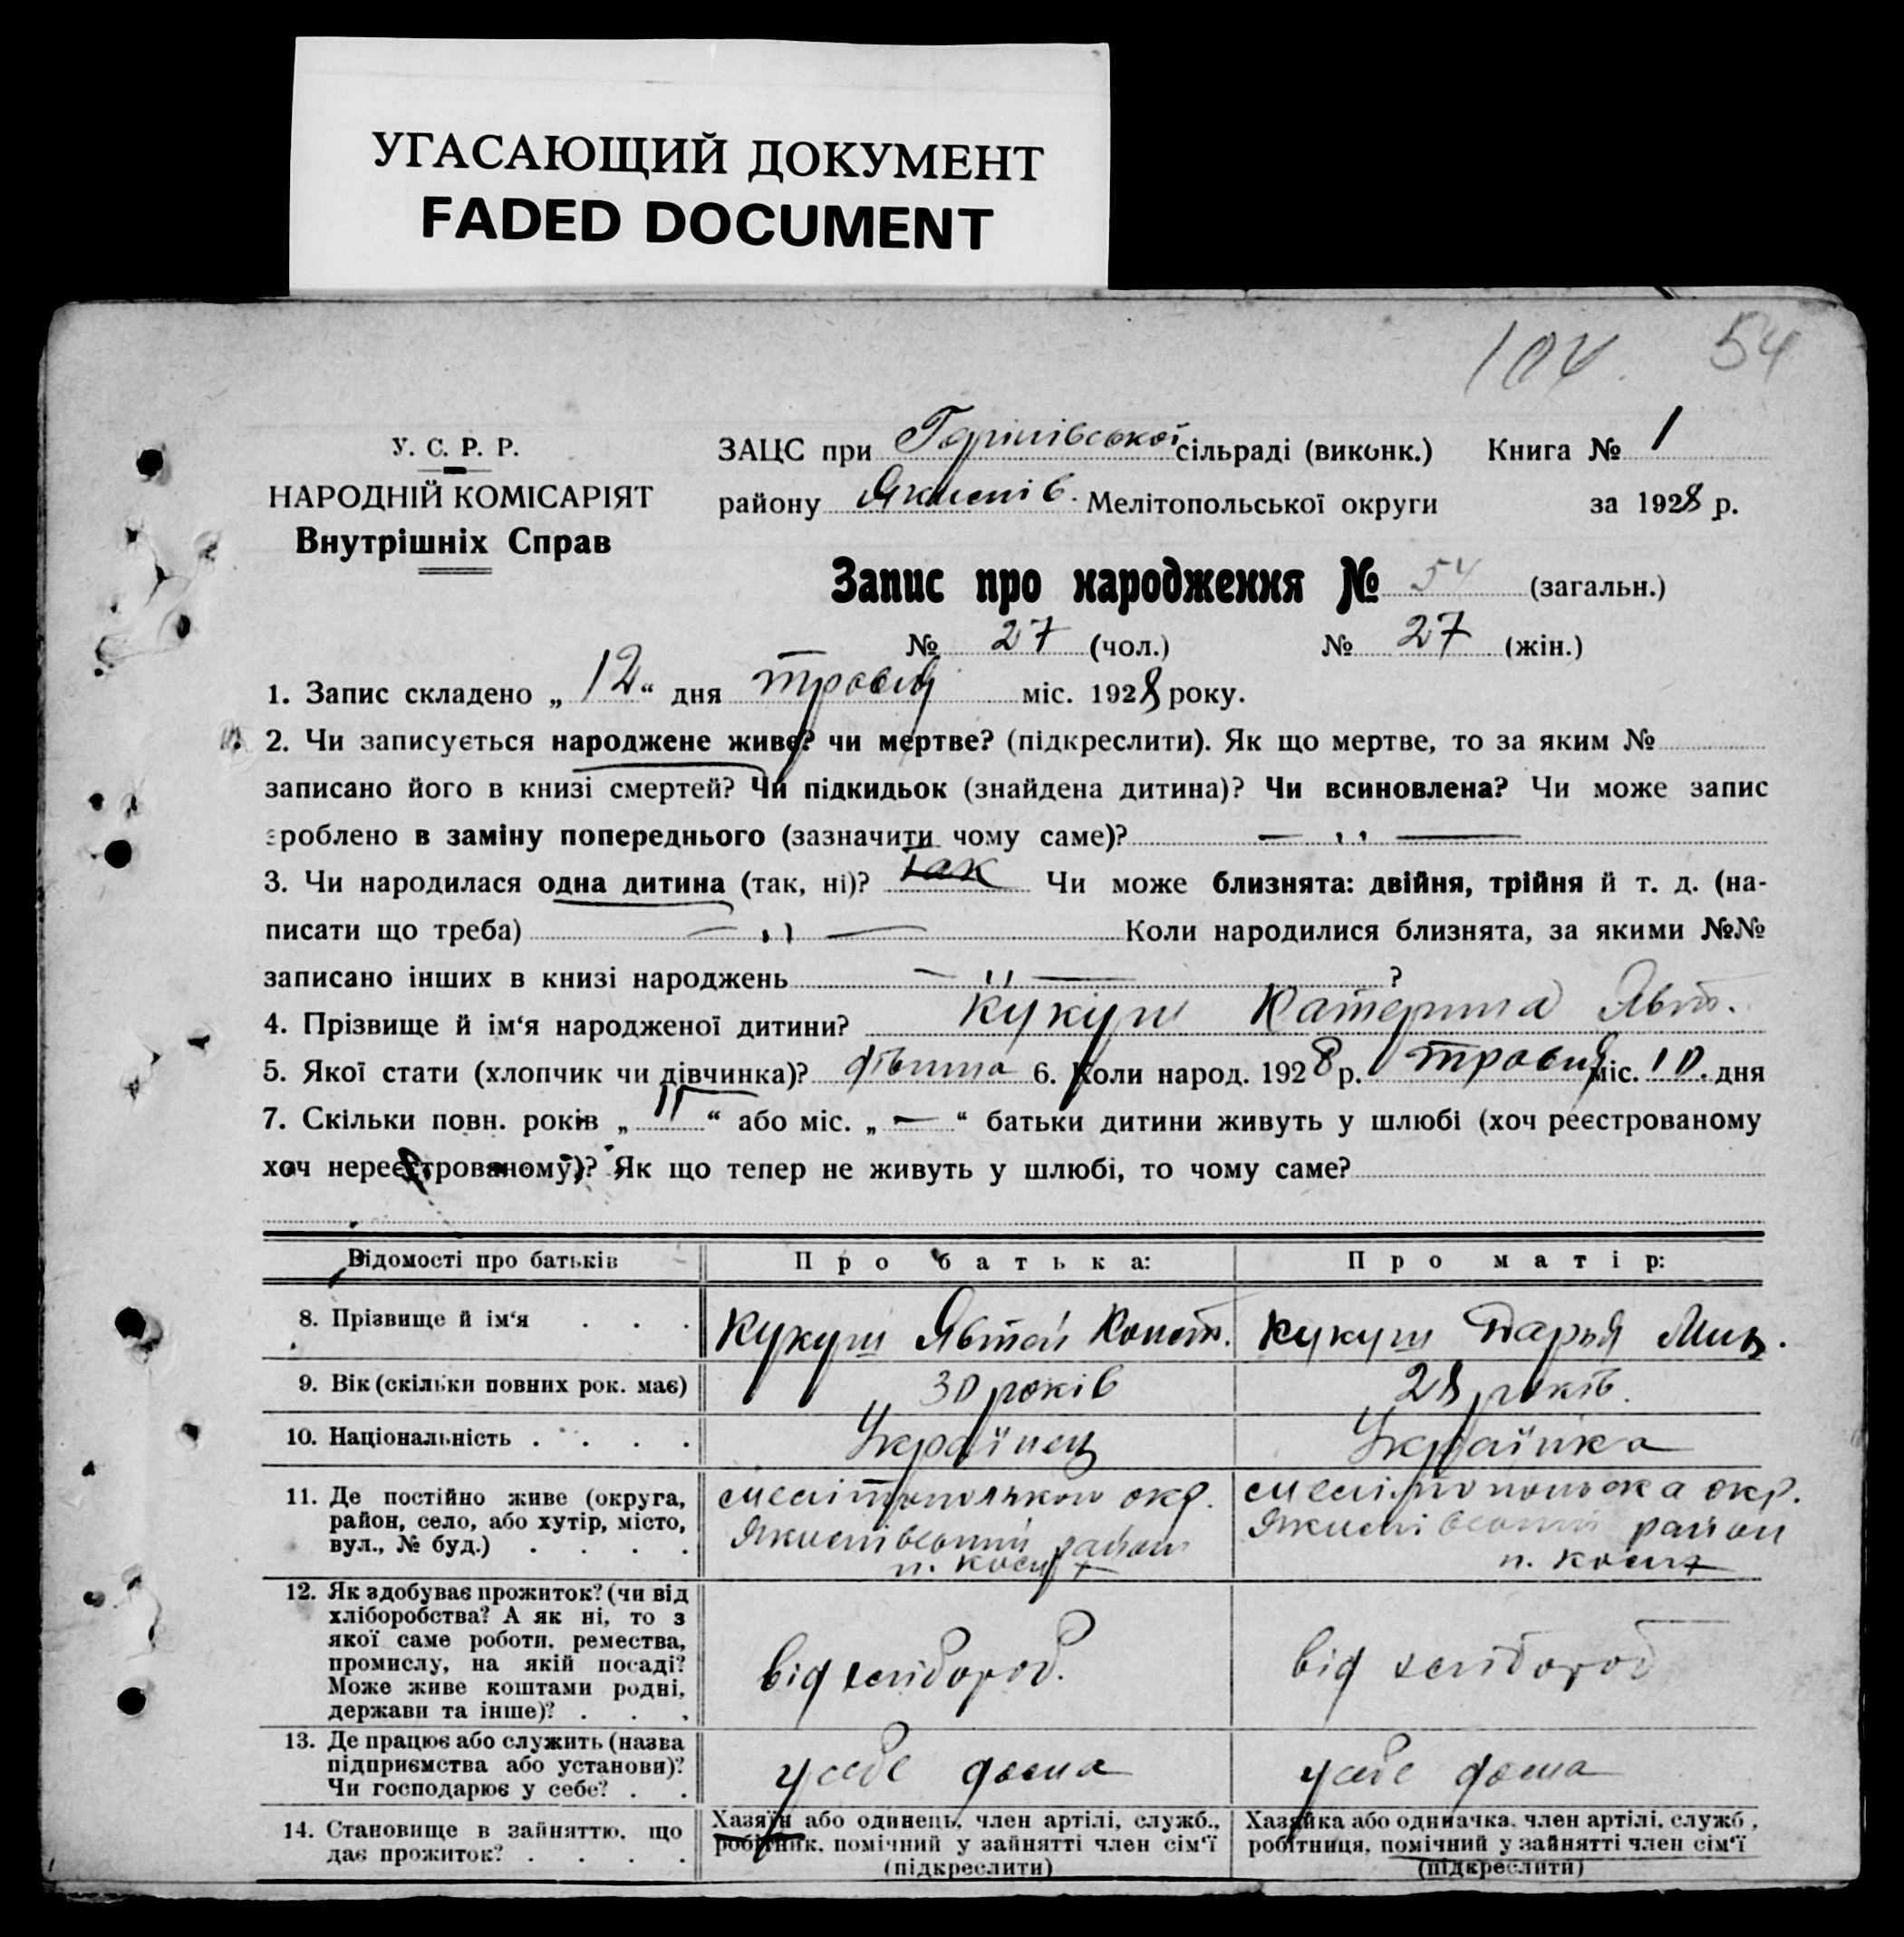 УГАСАЮЩИЙ ДОКУМЕНТ
FADED DOCUMENT
104. 54
У. С. Р. Р.
НАРОДНІЙ КОМІСАРІЯТ
Внутрішніх Справ
ЗАЦС при сільраді (виконк.) Книга № 1
району Якимів. Мелітопольської округи за 1928 р.
Запис про народження № 54 (загальн.)
№ 27 (чол.) № 27 (жін.)
1. Запис складено „ 12 “ дня травня міс. 1928 року.
2. Чи записується народжене живе? чи мертве? (підкреслити). Як що мертве, то за яким №
записано його в книзі смертей? Чи підкидьок (знайдена дитина)? Чи всиновлена? Чи може запис
зроблено в заміну попереднього (зазначити чому саме)? — „ —
3. Чи народилася одна дитина (так, ні)? так Чи може близнята: двійня, трійня й т. д. (на-
писати що треба) — „ — Коли народилися близнята, за якими №№
записано інших в книзі народжень — „ — ?
4. Прізвище й ім‘я народженої дитини? Кукуш Катерина Явт.
5. Якої стати (хлопчик чи дівчинка)? дівчина 6. Коли народ. 1928 р. травня міс. 10. дня
7. Скільки повн. років „ 11 “ або міс. „ — “ батьки дитини живуть у шлюбі (хоч реєстрованому
хоч нереєстрованому)? Як що тепер не живуть у шлюбі, то чому саме?
Відомості про батьків Про батька: Про матір:
8. Прізвище й ім‘я . . . Кукуш Явтей Конст. Кукуш Дарья Мих.
9. Вік (скільки повних рок. має) 30 років 28 років.
10. Національність . . . . Українец Українка
11. Де постійно живе (округа,
район, село, або хутір, місто,
вул., № буд.) . . . .
Мелітопольскои окр.
Якимівський район
Мелітопольска окр.
Якимівський район
12. Як здобуває прожиток? (чи від
хліборобства? А як ні, то з
якої саме роботи, ремества,
промислу, на якій посаді?
Може живе коштами родні,
держави та інше)? . . .
від хлібороб. від хлібороб
13. Де працює або служить (назва
підприємства або установи)?
Чи господарює у себе? . .
у себе дома у себе дома
14. Становище в зайняттю, що
дає прожиток? . . . .
Хазяїн або одинець, член артілі, служб.,
робітник, помічний у зайнятті член сім‘ї
(підкреслити)
Хазяйка або одиначка, член артілі, служб.,
робітниця, помічний у зайнятті член сім‘ї
(підкреслити)